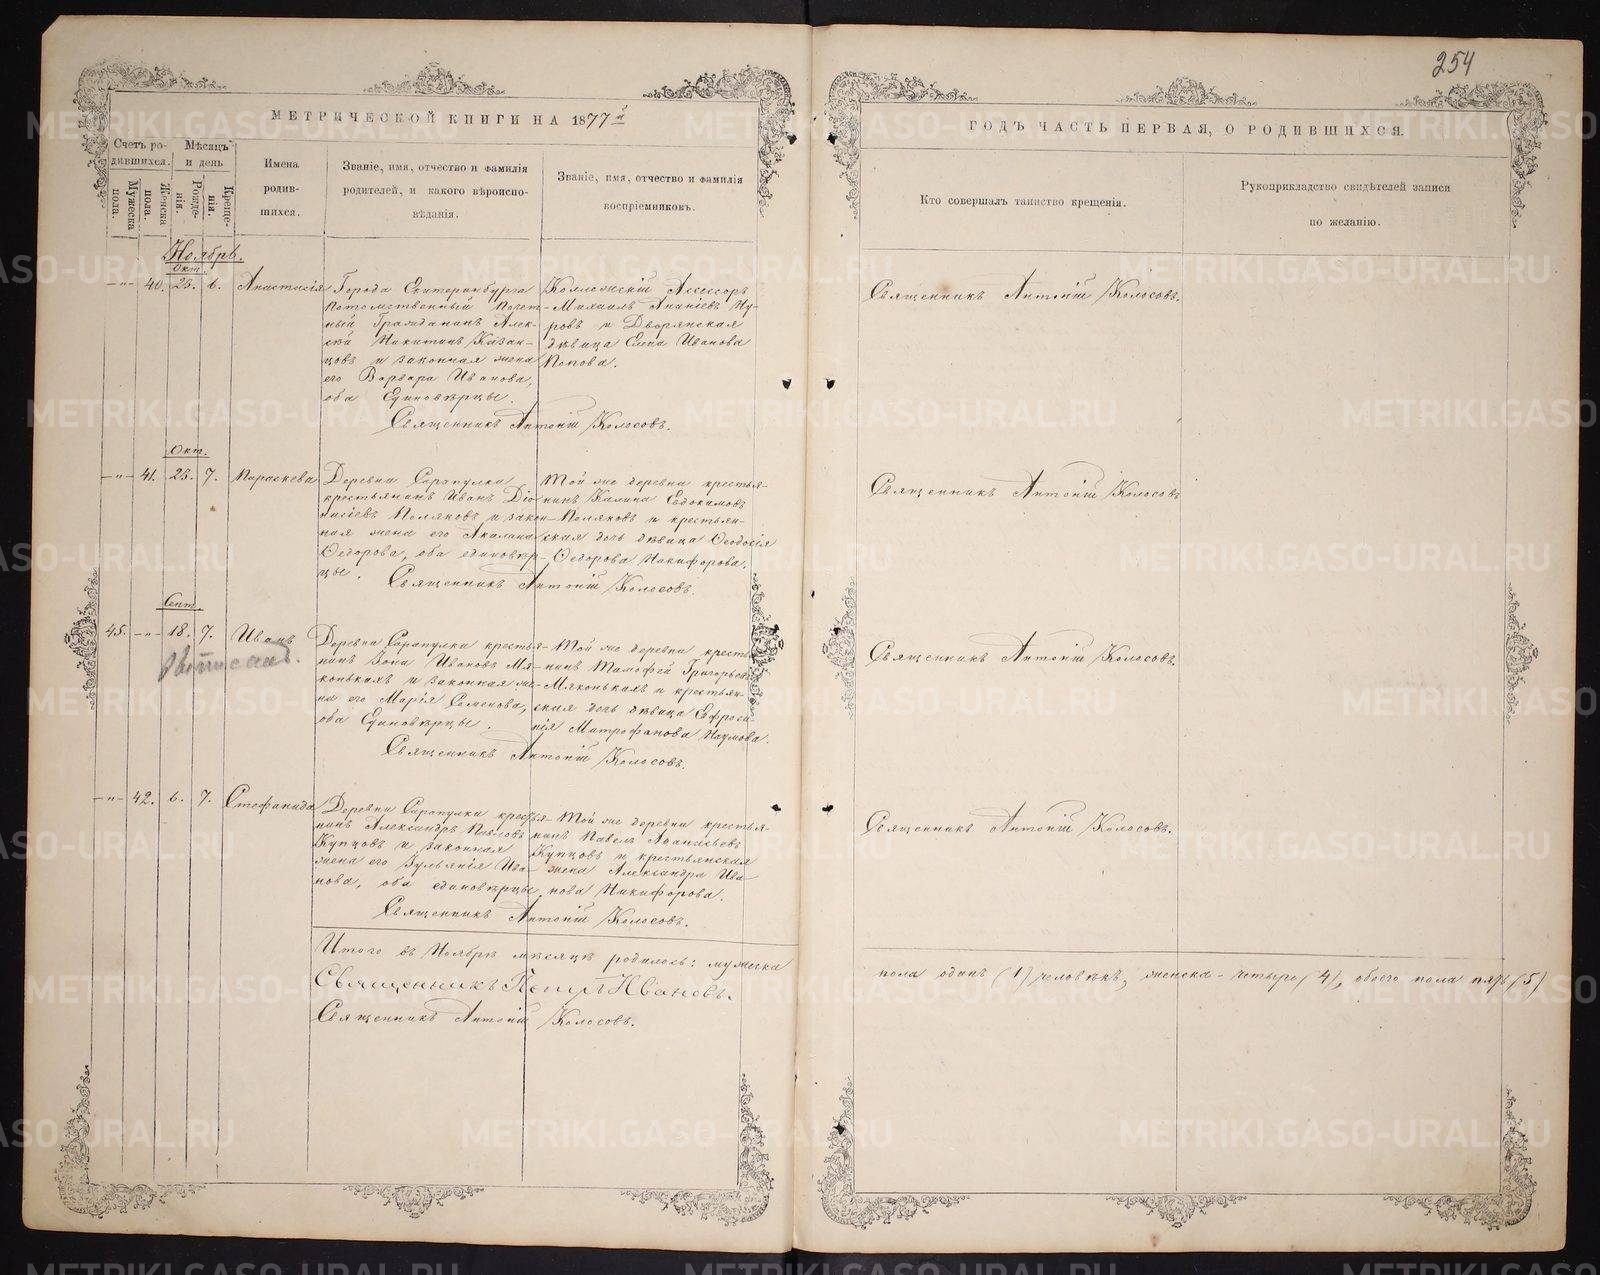 254
МЕТРИЧЕСКОЙ КНИГИ НА 1877й
ГОДЪ ЧАСТЬ ПЕРВАЯ, О РОДИВШИХСЯ.
Счетъ ро-
дившихся.
Мужеска
пола.
Женска
пола.
Мѣсяцъ
и день
Рожде-
нія.
Креще-
нія.
Имена
родив-
шихся.
Званіе, имя, отчество и фамилія
родителей, и какого вѣроиспо-
вѣданія.
Званіе, имя, отчество и фамилія
воспріемниковъ.
Кто совершалъ таинство крещенія.
Рукоприкладство свидѣтелей записи
по желанію.
Ноябрь.
Окт.
-"- 40. 25. 6. Анастасія
Города Екатеринбурга
потомственный Почет-
ный Гражданинъ Алек-
сѣй Никитинъ Казан-
цовъ и законная жена
его Варвара Иванова,
оба Единовѣрцы.
Коллежскій Ассесоръ
Михаилъ Ананіевъ Ну-
ровъ и Дворянская
дѣвица Елена Иванова
Попова.
Священникъ Антоній Колосовъ.
Священникъ Антоній Колосовъ.
Окт.
-"- 41. 25. 7. Параскева
Деревни Сарапулки
крестьянинъ Иванъ Діо-
нисіевъ Поляковъ и закон-
ная жена его Акилина
Ѳедорова, оба единовѣр-
цы.
Той же деревни крестья-
нинъ Калина Евдокимовъ
Поляковъ и крестьян-
ская дочь дѣвица Ѳеодосія
Ѳедорова Никифорова.
Священникъ Антоній Колосовъ.
Священникъ Антоній Колосовъ
Сент.
45. -"- 18. 7. Иванъ
Деревни Сарапулки крестья-
нинъ Іона Ивановъ Мя-
конькахъ и законная же-
на его Марія Семенова,
оба Единовѣрцы.
Той же деревни кресть-
нинъ Тимофей Григорьевъ
Мяконькахъ и крестьян-
ская дочь дѣвица Ефроси-
нія Митрофанова Наумова.
Священникъ Антоній Колосовъ.
Священникъ Антоній Колосовъ.
-"- 42. 6. 7. Стефанида
Деревни Сарапулки крестья-
нинъ Александръ Павловъ
Купцовъ и законная
жена его Іульянія Ива-
нова, оба единовѣрцы
Той же деревни крестья-
нинъ Павелъ Аѳанасьевъ
Купцовъ и крестьянская
жена Александра Ива-
нова Никифорова.
Священникъ Антоній Колосовъ.
Священникъ Антоній Колосовъ.
Итого въ Ноябрѣ мѣсяцѣ родилось: мужеска
пола одинъ (1) человѣкъ, женска - четыре (4), обоего пола пять (5)
Священникъ Петръ Ивановъ.
Священникъ Антоній Колосовъ.
METRIKI.GASO-URAL.RU